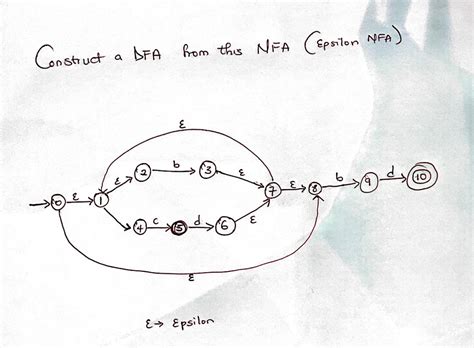 Construct a DFA from this NFA (Epsilon NFA)
ε
2 b 3
ε ε
0 ε 1 7 ε 8 b 9 d 10
4 c 5 d 6
ε
ε
ε → Epsilon